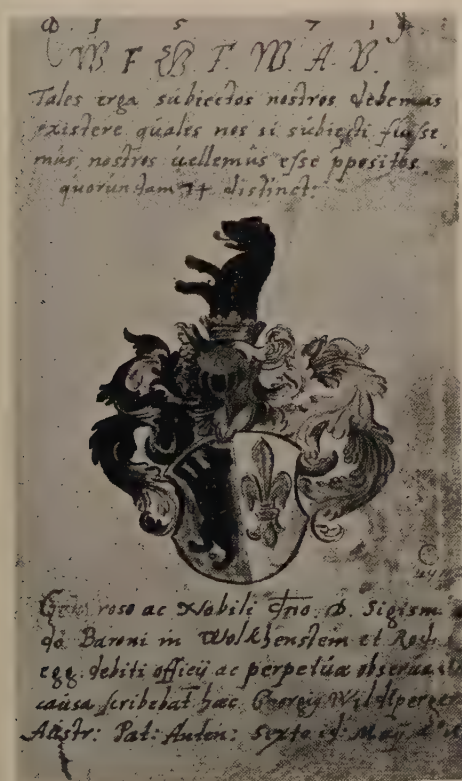 1 5 7 1
W F W F. W. A. V.
Tales erga subiectos nostros debemus
existere quales nos si subiecti fuisse
mus, nostros uellemus esse ppositos.
quorundam 74 distinct:
Generoso ac Nobili dno D. Sigism
do Baroni in Wolkhenstein et Rod
egg debiti officij ac perpetuæ obserua
causa scribebat hæc Georgi Wildtperger
Austr: Pat: Anten: Sexto id: Maij